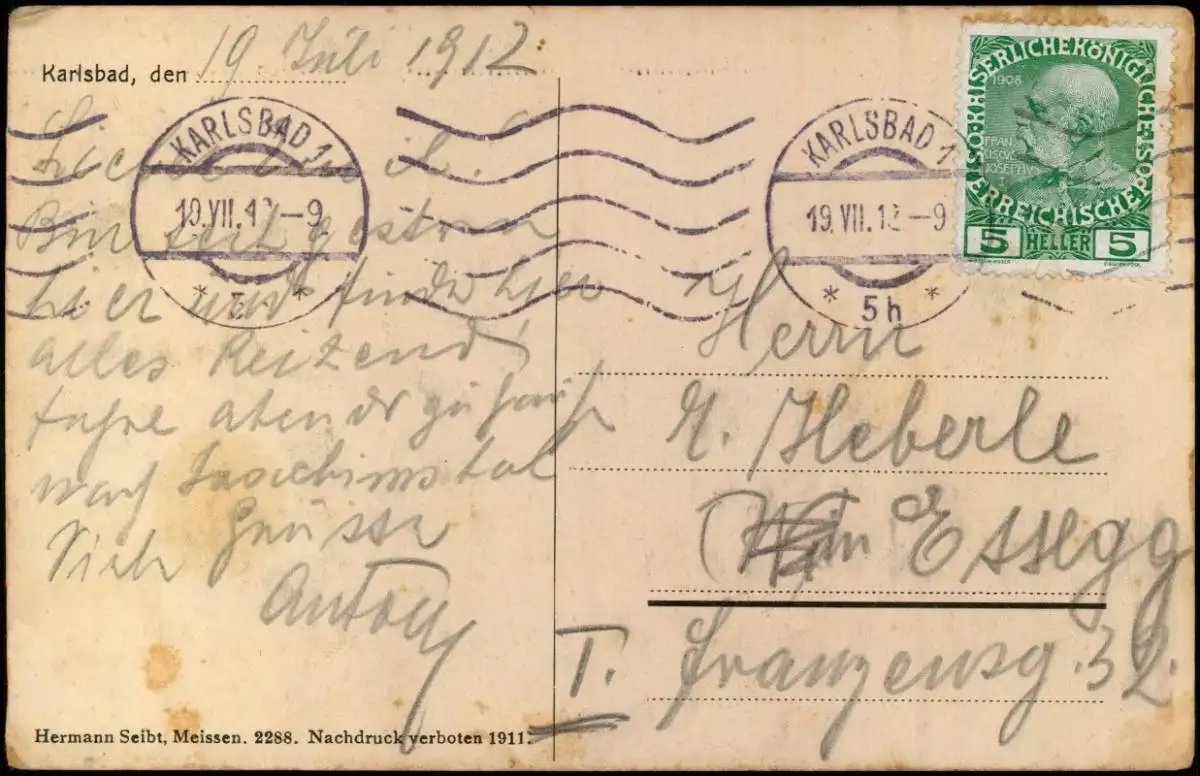 Karlsbad, den 19. Juli 1912
KARLSBAD 1
19.VII.12 –9
* 5 *
KARLSBAD 1
19.VII.12 –9
* 5h *
KAISERLICHE KÖNIGLICHE ÖSTERREICHISCHE POST
1908
FRAN
CISCVS
JOSEPHVS
5 HELLER 5
Bin seit gestern
hier und finde hier
alles Reizend
fahre abends zu
nach Joachimstal
Viele Grüsse
Anton
Herrn
Heberle
Wien Essegg
T. Franzensg. 32.
Hermann Seibt, Meissen. 2288. Nachdruck verboten 1911.